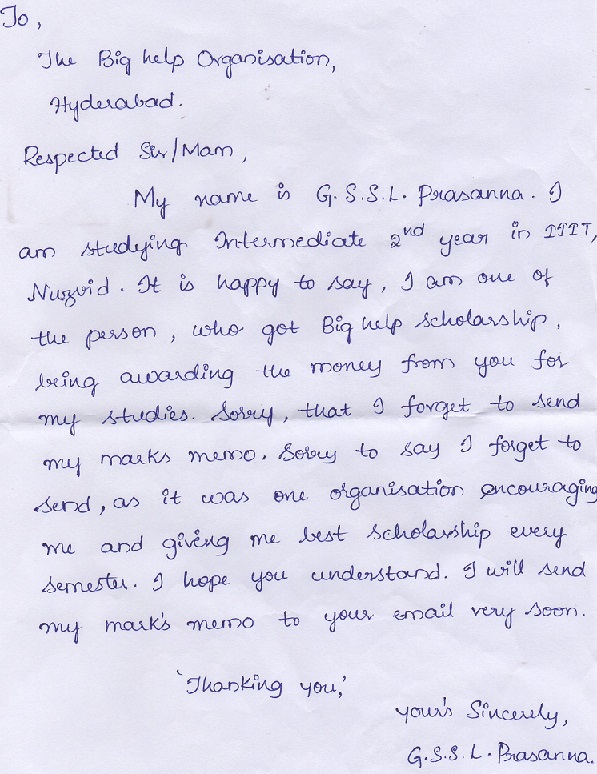 To,
The Big help Organisation,
Hyderabad.
Respected Sir/Mam,
My name is G.S.S.L. Prasanna. I
am studying Intermediate 2nd year in IIIT,
Nuzvid. It is happy to say, I am one of
the person, who got Big help scholarship,
being awarding the money from you for
my studies. Sorry, that I forget to send
my marks memo. Sorry to say I forget to
send, as it was one organisation encouraging
me and giving me best scholarship every
semester. I hope you understand. I will send
my mark's memo to your email very soon.
'Thanking you,'
your's Sincerely,
G.S.S.L. Prasanna.